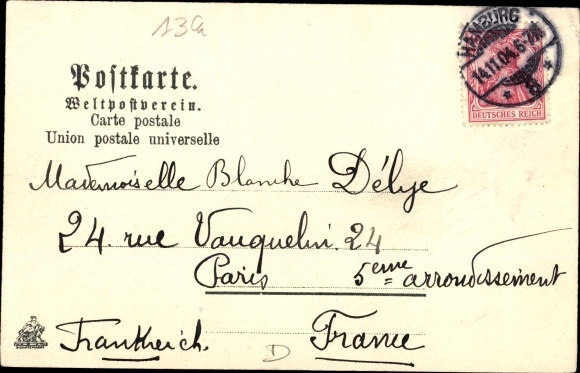 13a
HAMBURG
14.11.04.6-7N
DEUTSCHES REICH
Postkarte.
Weltpostverein.
Carte postale
Union postale universelle
Mademoiselle Blanche Délye
24. rue Vauquelin. 24
Paris 5eme arrondissement
Frankreich. France
D